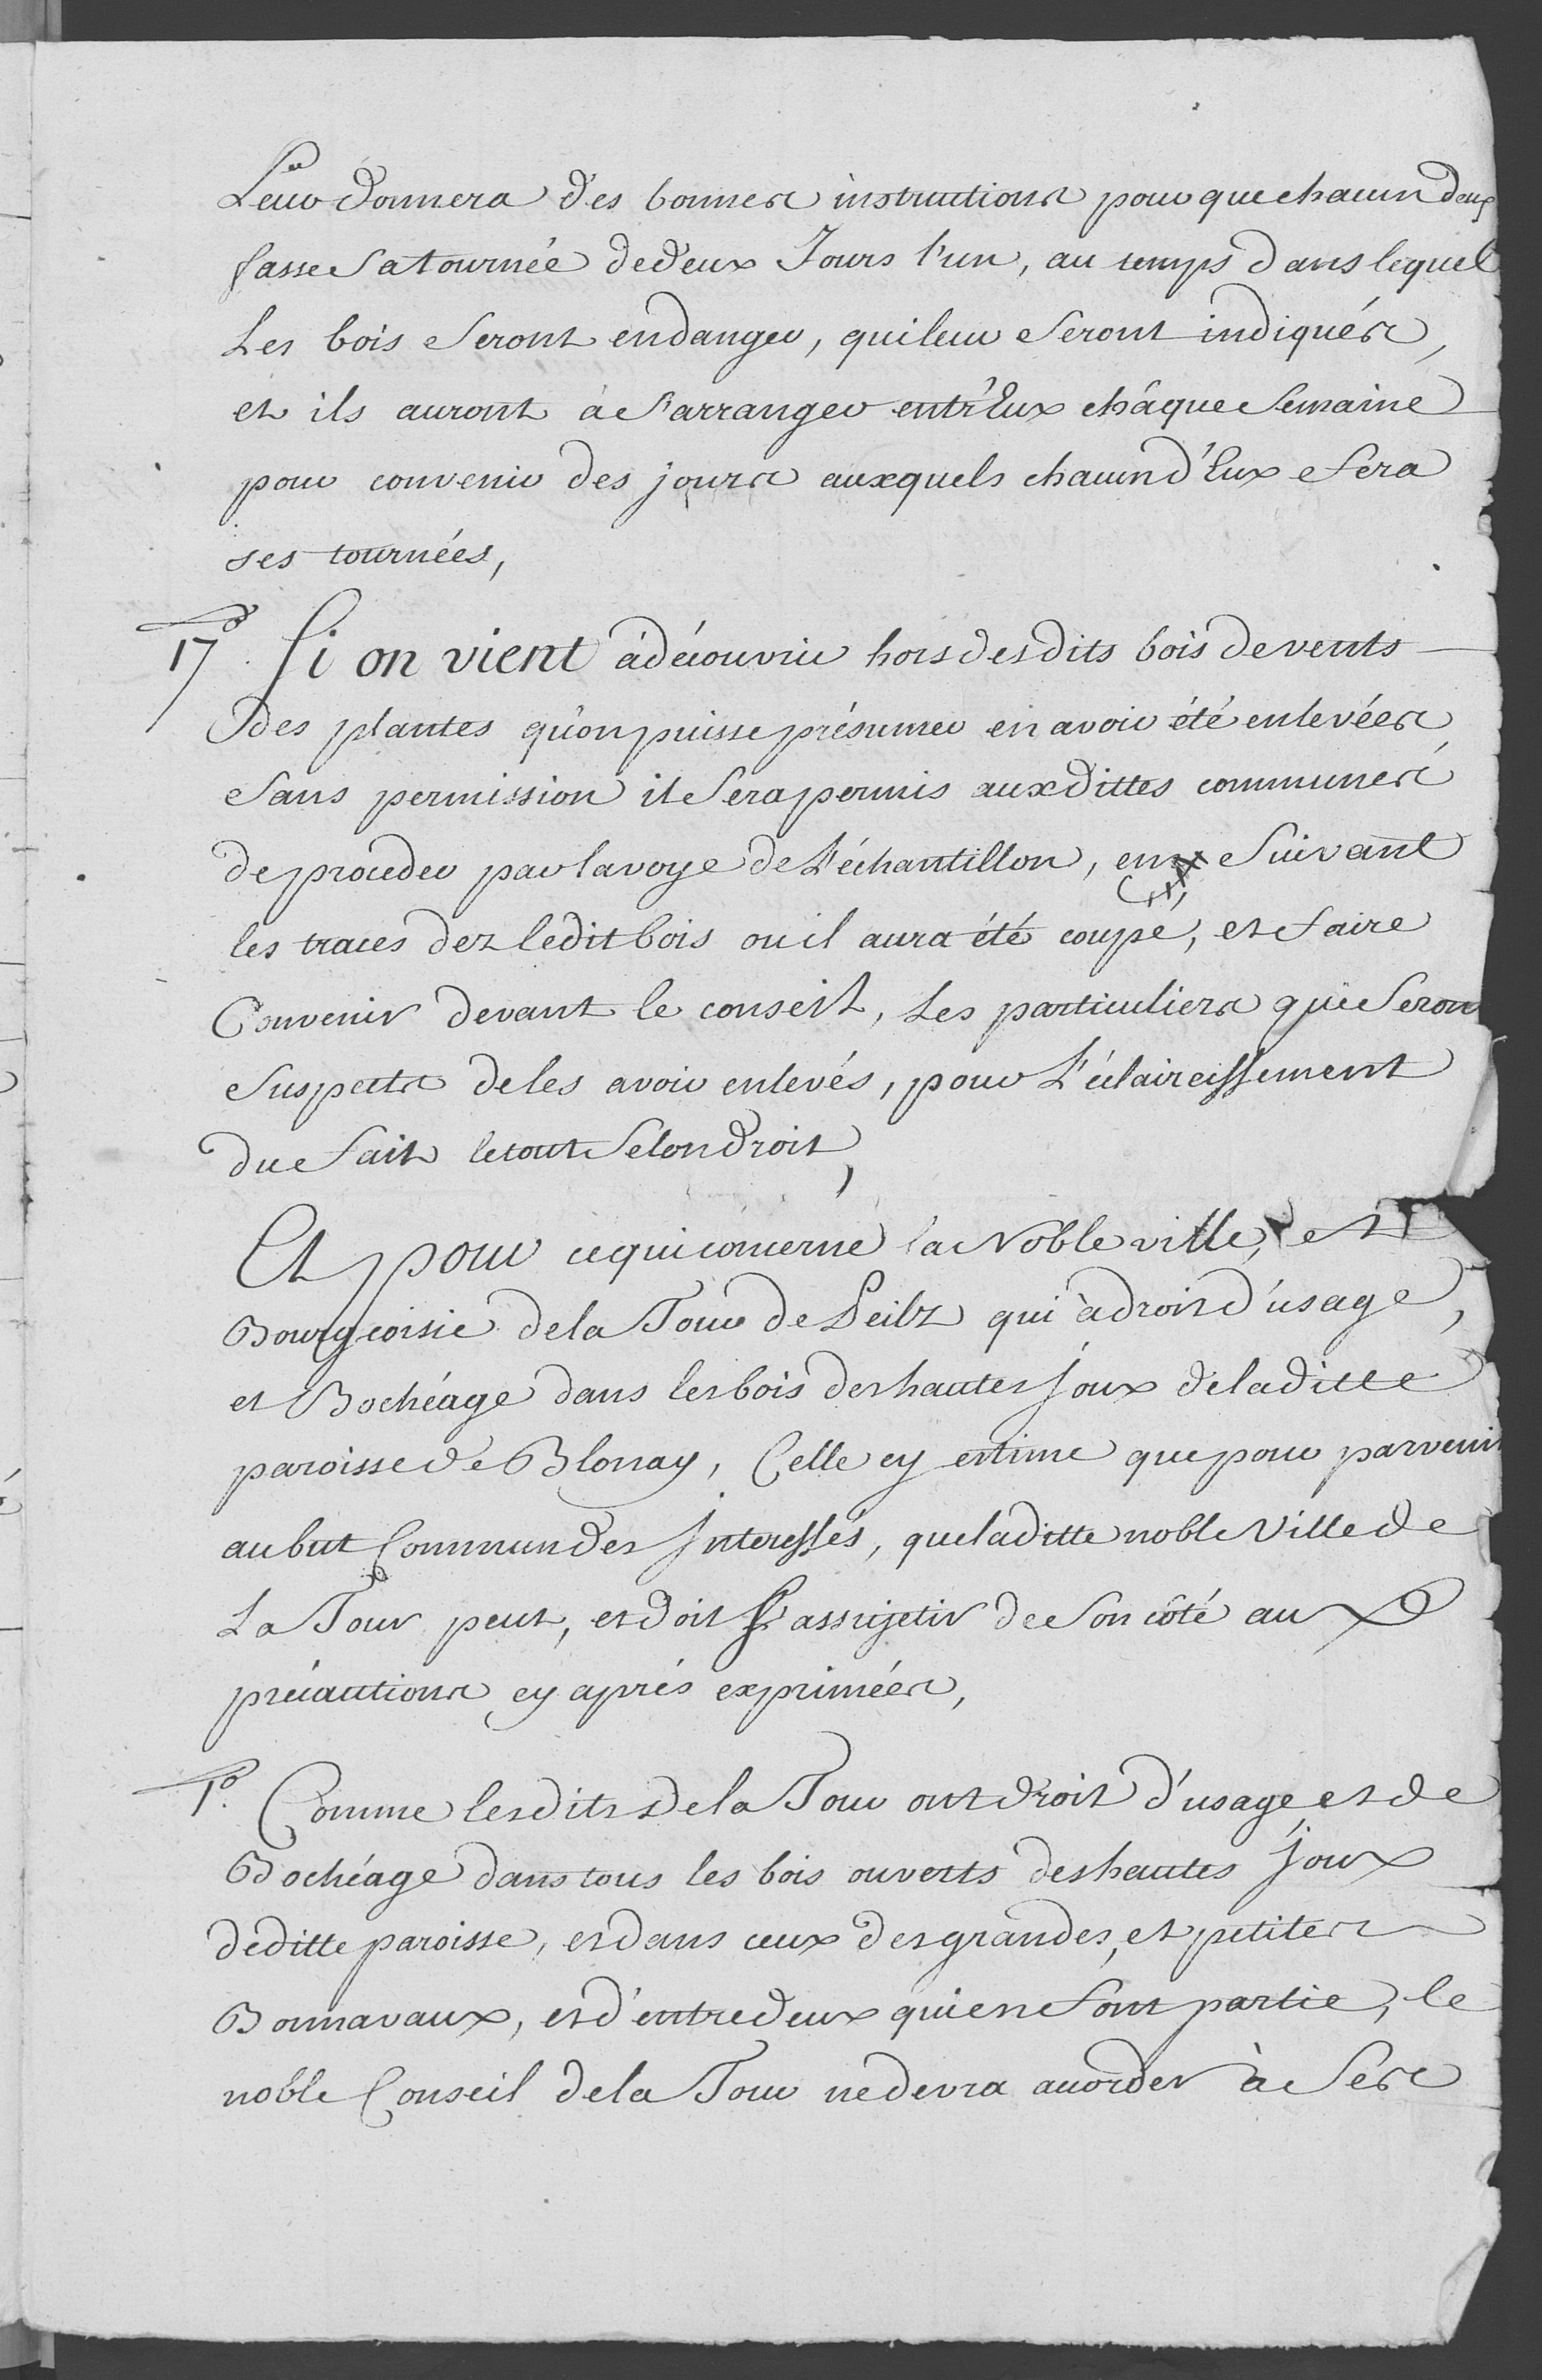 Leur donnera des bonnes instructions pour que chacun deux
fasse sa tournée de deux Jours l'un, au temps dans lequel
Les bois seront en danger, qui leur seront indiqués,
et ils auront à s'arranger entr'Eux châque semaine
pour convenir des jours auxquels chacun d'Eux fera
ses tournées,
17º. Si on vient à découvrir hors desdits bois de vents
des plantes qu'on puisse présumer en avoir été enlevées
sans permission il sera permis auxdittes communes
de proceder par la voye de L'échantillon, en suivant
les traces dez ledit bois ou il aura été coupé, et faire
Convenir devant le conseil, Les particuliers qui seront
suspects de les avoir enlevés, pour L'éclaircissement
du fait le tout selon droit,
Et pour ce qui concerne la Noble ville, et
Bourgeoisie de la Tour de Peilz qui à droit d'usage,
et Bochéage dans les bois des hautes Joux de laditte
paroisse de Blonay, Celle cy estime que pour parvenir
au but Commun des Interessés, que laditte noble Ville de
La Tour peut, et doit s'assujetir de son côté aux
précautions cy après exprimées,
1º. Comme lesdits de la Tour ont droit d'usage et de
Bochéage dans tous les bois ouverts des hautes Joux
de ditte paroisse, et dans ceux des grandes, et petites
Bonnavaux, et d'entredeux qui en font partie, le
noble Conseil de la Tour ne devra accorder à ses